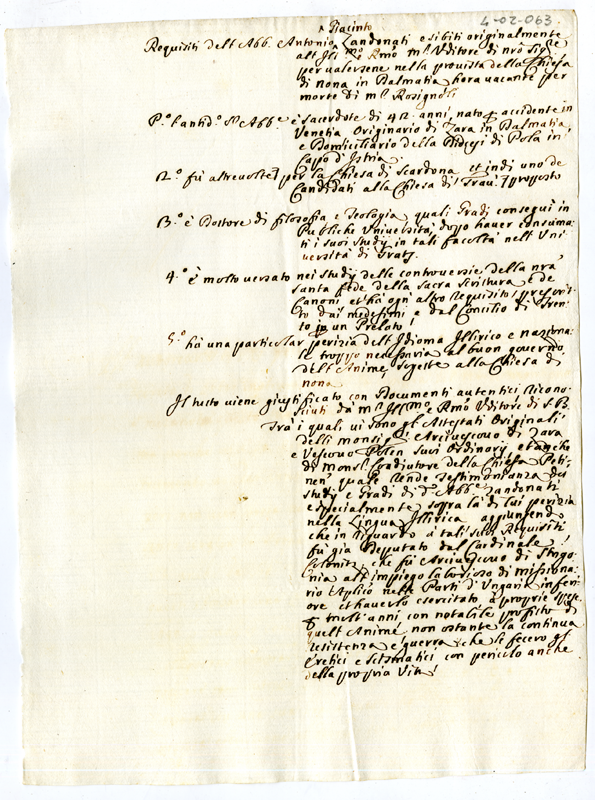 4-02-063.
^ Giacinto
Requisiti dell Abb. Antonio Zandonati esibiti originalmente
all Ill.mo Rmo m.r Uditore di nro Sig.re
per valersene nella provista della Chiesa
di Nona in Dalmatia hora vacante per
morte di m.r Rosignoli
P.o l'antid.o S.r Abb.e è sacerdote di 42 anni, nato p accidente in
Venetia Originario di Zara in Dalmatia
e Domiciliario della Diocesi di Pola in
Capo d'Istria
2.o fù altre volte per la Chiesa di Scardona et indi uno de
Candidati alla Chiesa di Traù proposto
3.o è Dottore di filosofia e Teologia, quali Gradi conseguì in
Publiche Università, doppo haver consuma:
ti i suoi study in tali facoltà nell Uni:
versità di Gratz.
4.o è molto versato nei study delle controversie della nra
santa fede della sacra scrittura e de
Canoni, et hà ogn altro Requisito prescrit:
to dai medesimi e dal Concilio di Tren:
to in un Prelato
5.o hà una particolar perizia dell Idioma Illirico e naziona:
le troppo necessaria al buon governo
dell Anime sogette alla Chiesa di
nona
Il tutto viene giustificato con Documenti autentici Ricono:
sciuti dà m.r Ill.mo e Rmo Uditore di S. B.
Trà i quali vi sono gl Attestati Originali
delli monsig.ri Arcivescovo di Zara
e Vescovo Polen suoi Ordinary, et anche
di Mons.r Coadiutore della Chiesa Peti:
nen, quale rende testimonianza dei
study e Gradi di d.o Abb.e Zandonati
e specialmente sopra la di lui perizia
nella Lingua Illirica aggiungendo
che in riguardo à tali suoi Requisiti
fù già Deputato dal Cardinale
Colonitz, che fù Arcivescovo di Strigo:
nia all impiego laborioso di missiona:
rio Aplico nelle Parti d'Ungaria inferi:
ore et haverlo esercitato à proprie spese
p molt'anni con notabile profitto di
quell Anime non ostante la continua
resistenza e guerra che li fecero gl
eretici e scismatici con pericolo anche
della propria Vita